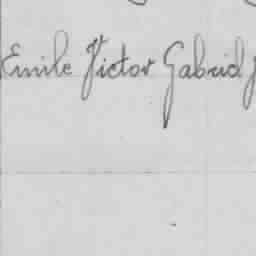 Emile Victor Gabriel